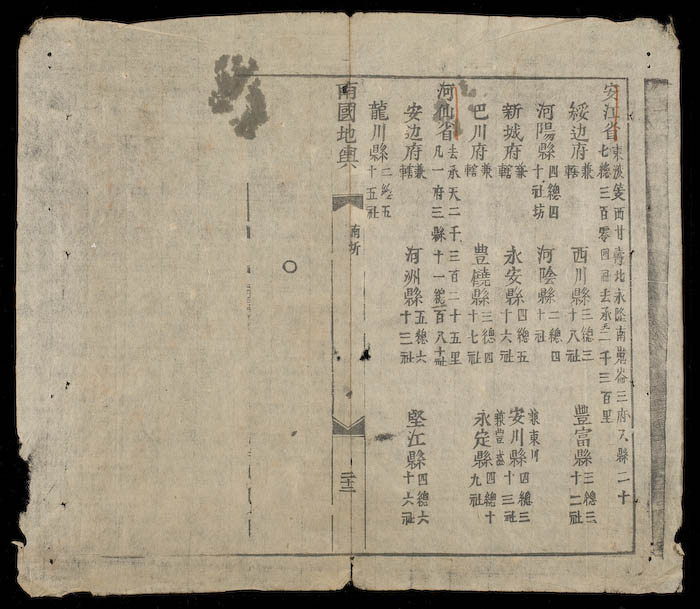 安江省 東 西 北永隆南 三府 縣二十
七總三百零四 去承天二千三百里
綏边府兼轄 西川縣三總三十八社 豊富縣三總三十二社
河陽縣四總四十社坊 河陰縣二總四十社 兼東川
新城府兼轄 永安縣四總五十六社 安川縣四總三十三社
巴川府兼轄 豊饒縣三總四十七社 永定縣四總十九社
河仙省 去承天二千三百二十五里
凡一府三縣十一總一百八十社
安边府兼轄 河洲縣五總六十三社 堅江縣四總六十六社
龍川縣二總五十五社
南國地輿
南圻
二十三